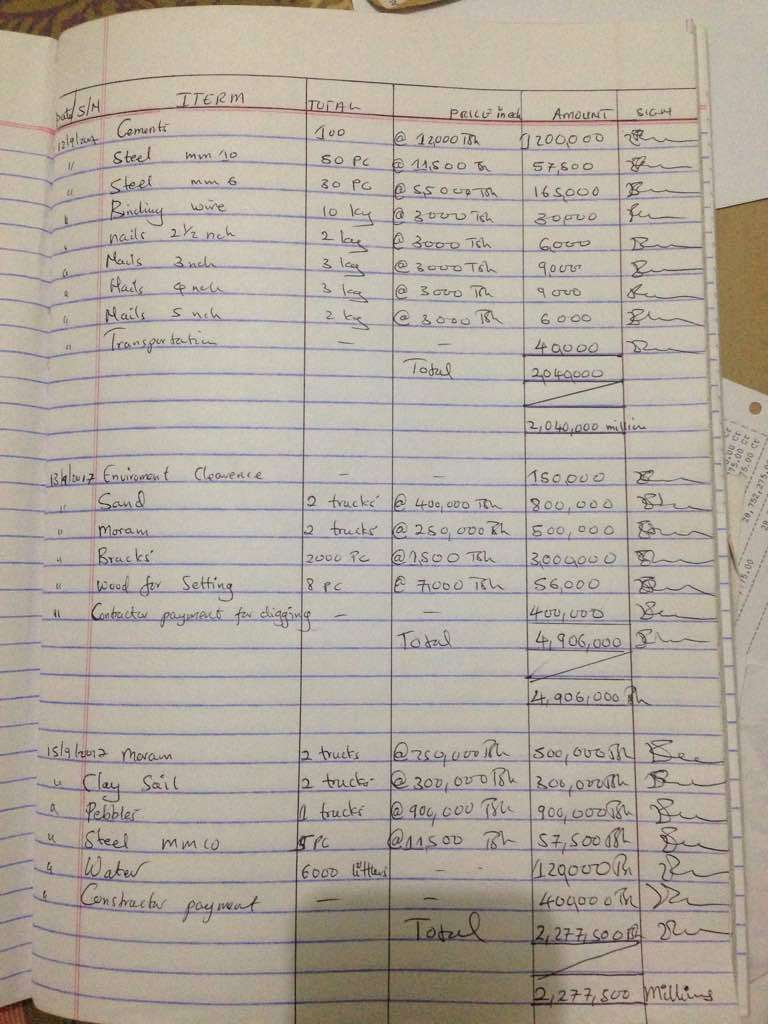 Date S/N ITERM TOTAL PRICE in each AMOUNT SIGN
12/9/2017 Cements 100 @ 12,000 Tsh 1200,000
" Steel mm 10 50 PC @ 11,500 Tsh 57,500
" Steel mm 6 30 PC @ 5,500 Tsh 165,000
" Binding wire 10 kg @ 3000 Tsh 30,000
" nails 2 1/2 nch 2 kg @ 3000 Tsh 6,000
" Nails 3 nch 3 kg @ 3000 Tsh 9,000
" Nails 4 nch 3 kg @ 3000 Tsh 9000
" Nails 5 nch 2 kg @ 3000 Tsh 6000
" Transportation — — 40,000
Total 2,040,000
2,040,000 million
13/9/2017 Enviroment Clearence — — 150,000
" Sand 2 trucks @ 400,000 Tsh 800,000
" Moram 2 trucks @ 250,000 Tsh 500,000
" Bracks 2000 PC @ 1,500 Tsh 3,000,000
" Wood for Setting 8 PC @ 7,000 Tsh 56,000
" Contractor payment for digging — — 400,000
Total 4,906,000
4,906,000 Tsh
15/9/2017 Moram 2 trucks @ 250,000 Tsh 500,000 Tsh
" Clay Sail 2 trucks @ 300,000 Tsh 300,000 Tsh
" Pebbles 1 trucks @ 900,000 Tsh 900,000 Tsh
" Steel mm 10 5 PC @ 11,500 Tsh 57,500 Tsh
" Water 6000 litters - - 120,000 Tsh
" Constructor payment — — 400,000 Tsh
Total 2,277,500 Tsh
2,277,500 Millions